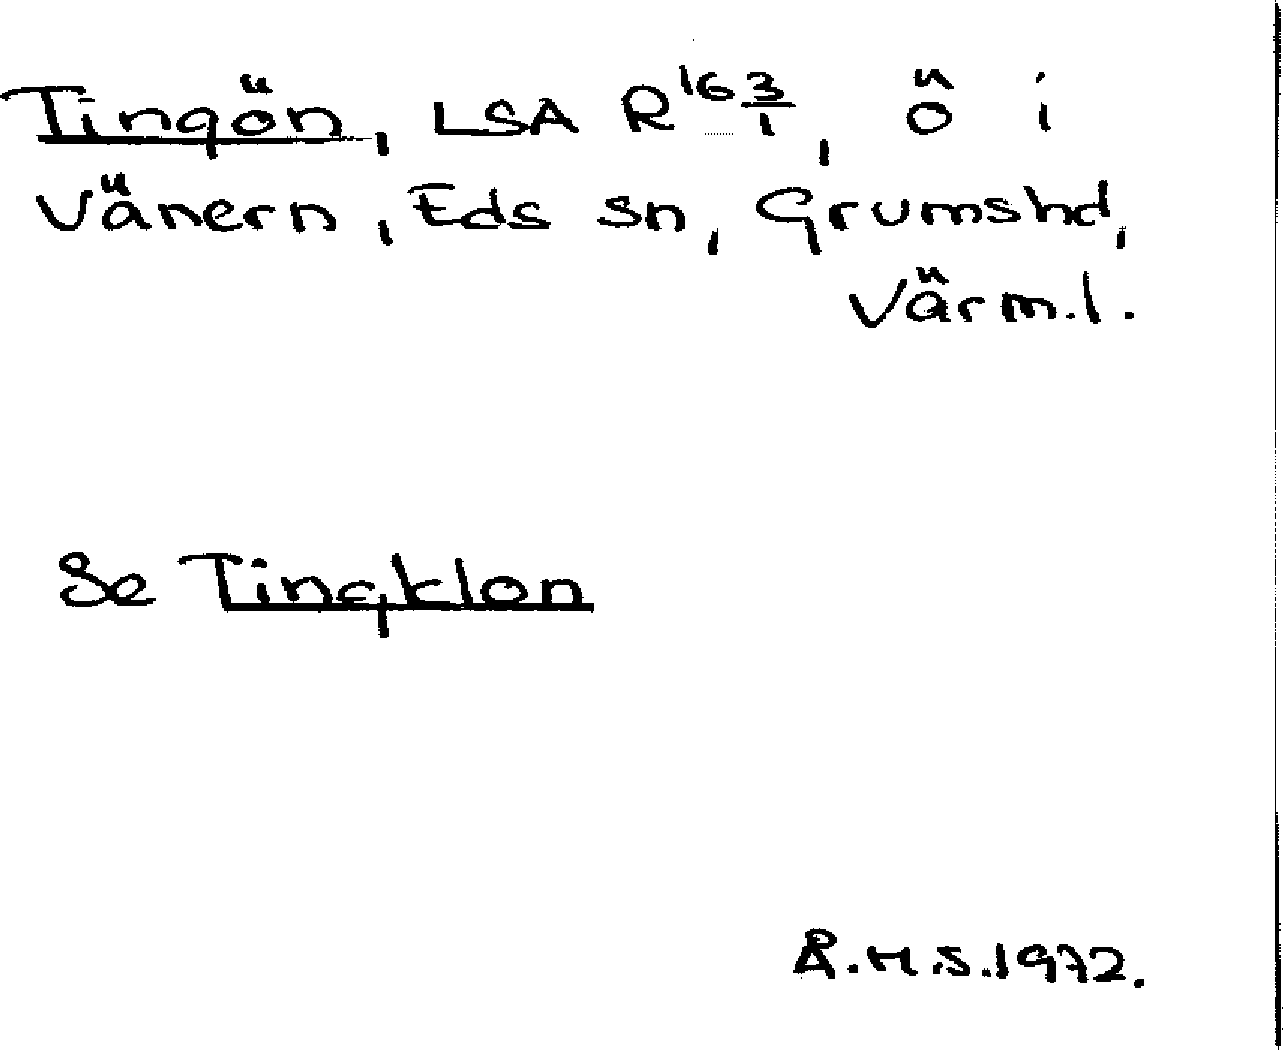 Tingön, LSA R 16 3/1, ö i
Vänern, Eds sn, Grums hd,
Värml.
Se Tingklon
R.H.S. 1972.